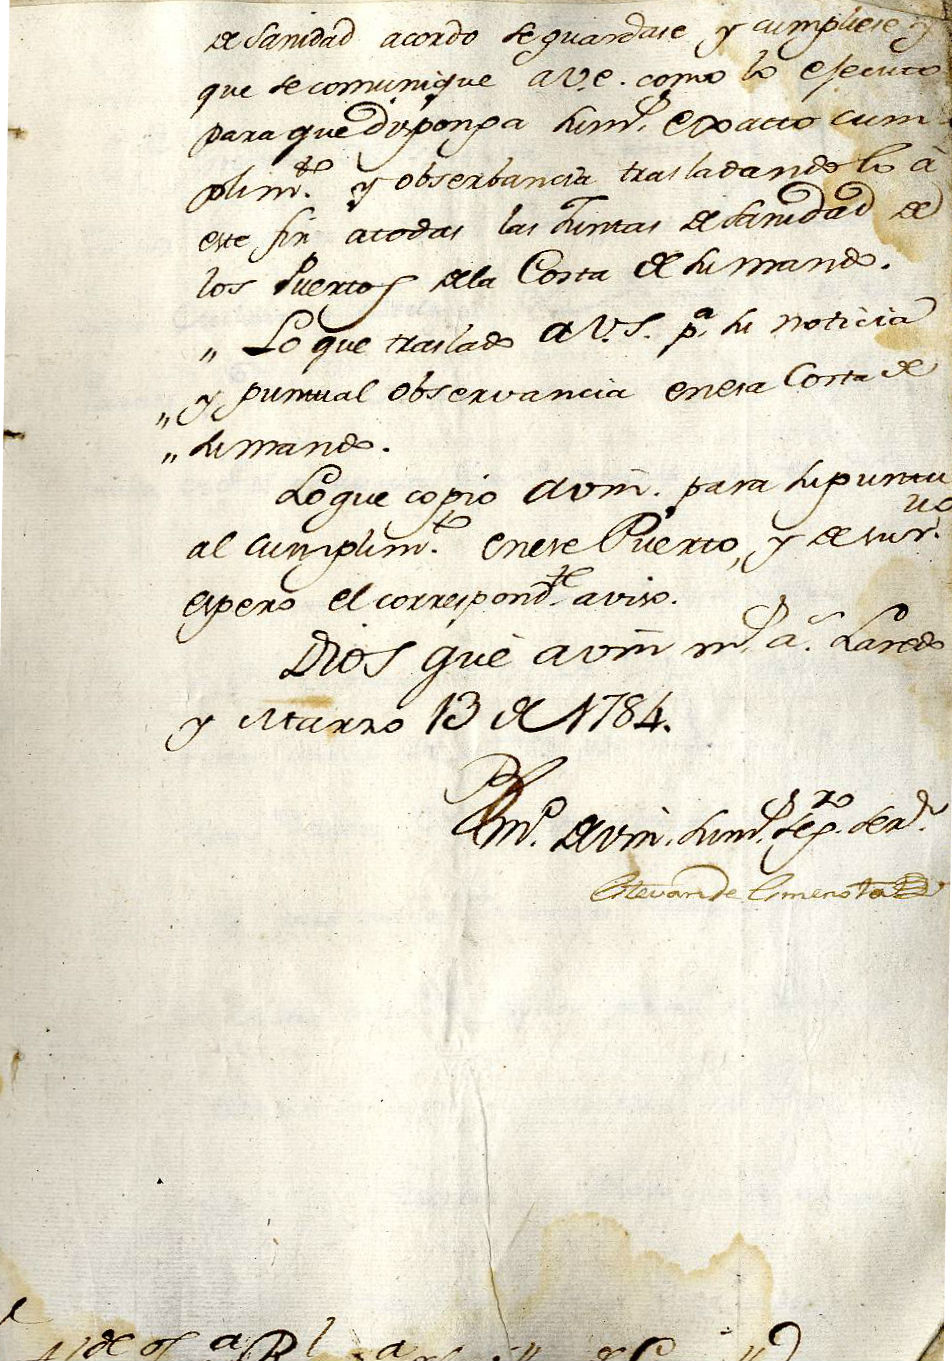 de Sanidad acordo se guardase y cumpliese y
que se comunique a V.e. como lo ejecuto
para que disponga su m.r exacto cum-
plim.to y observancia trasladandolo à
este fin a todas las Juntas de Sanidad de
los Puertos de la Costa de su mando.
" Lo que traslado a V.S. p.a su noticia
" y puntual observancia en esa Costa de
" su mando.
Lo que copio a vm̃. para su puntu
al cumplim.to en ese Puerto, y de su r.vo
espero el correspond.te aviso.
Dios gue a vm̃ m.s a.s Laredo
y Marzo 13 de 1784.
B l m.o de vm̃. su m.r seg.ro ser.r
Estevan de